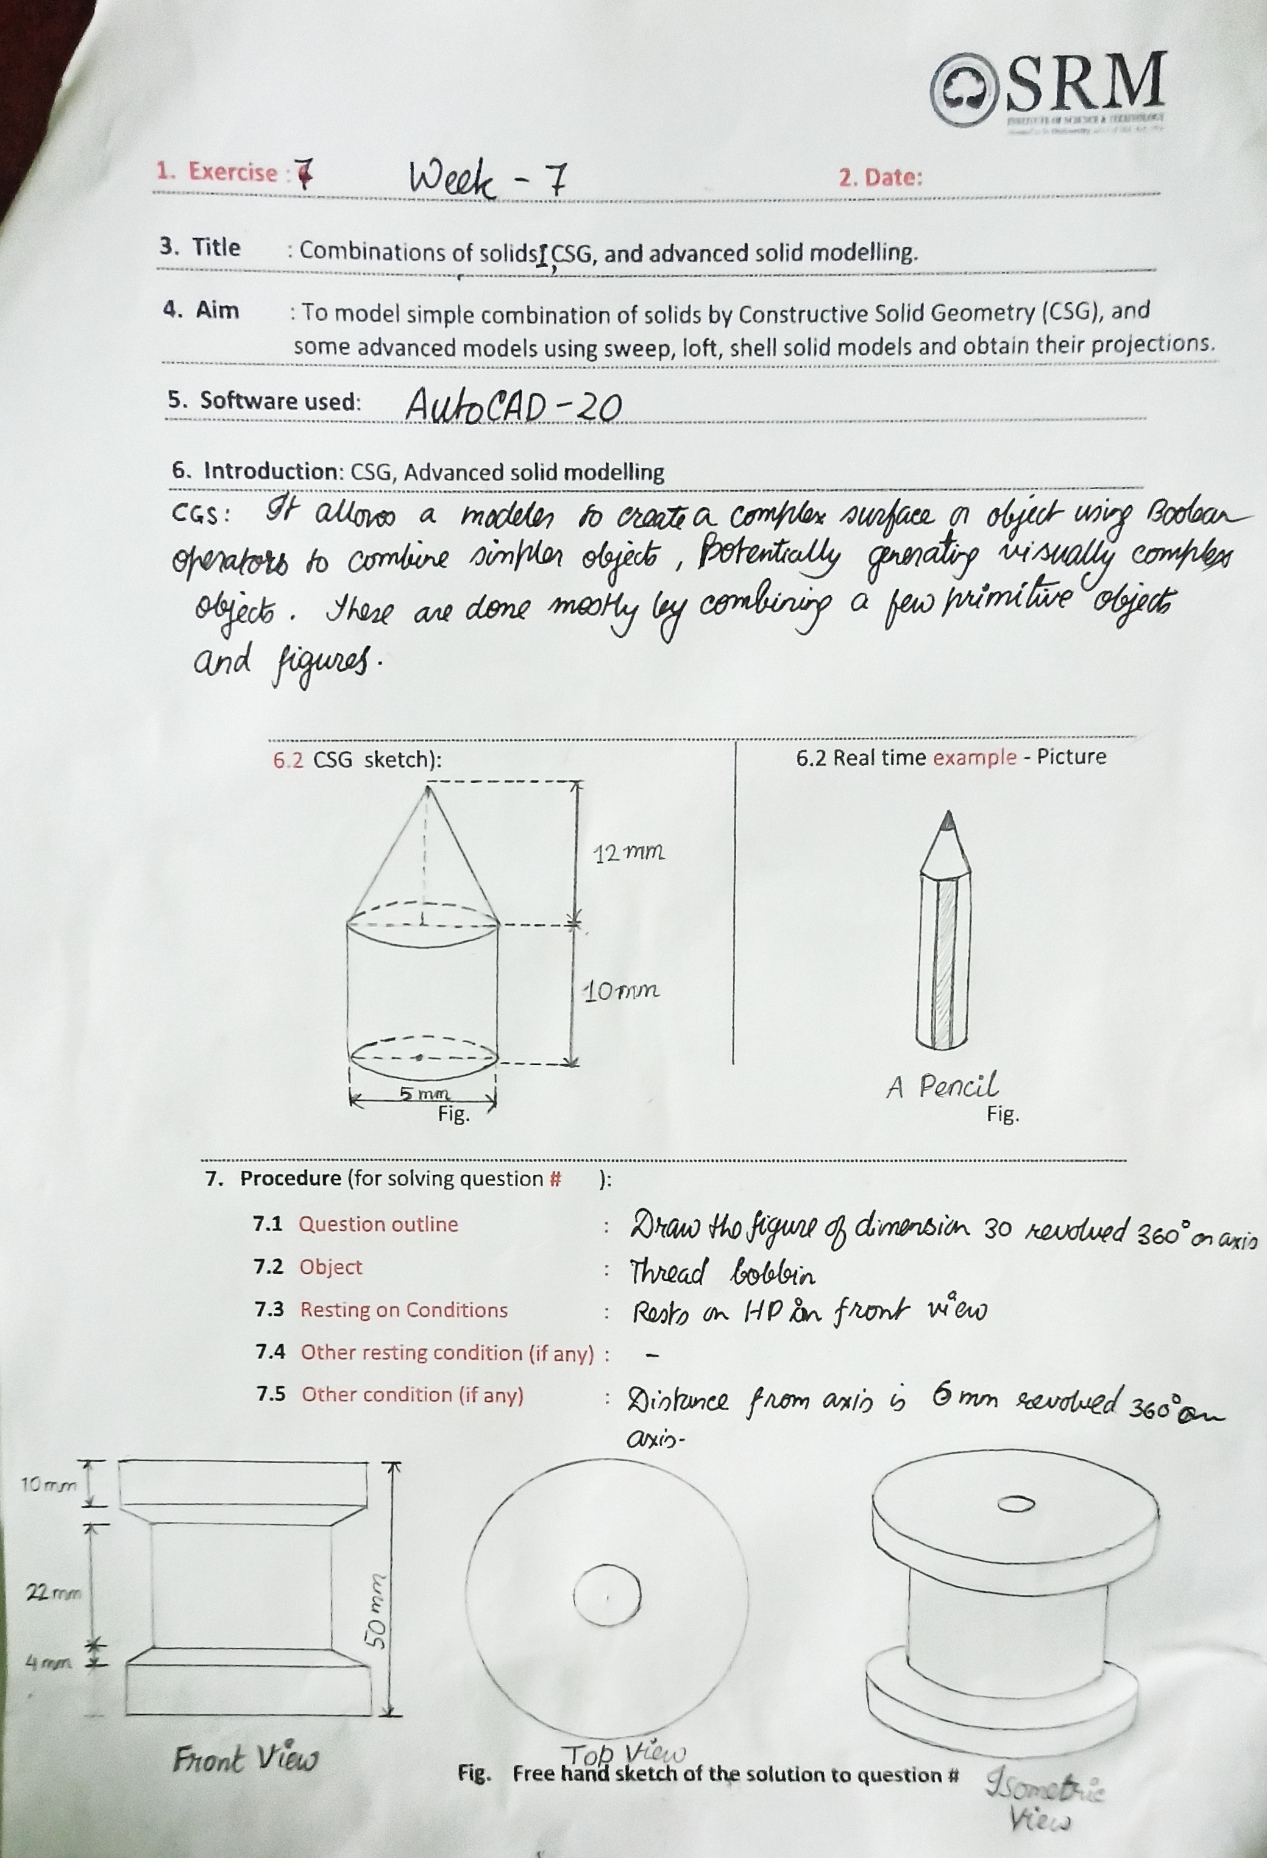 SRM
INSTITUTE OF SCIENCE & TECHNOLOGY
1. Exercise : 7 Week - 7 2. Date:
3. Title : Combinations of solids I, CSG, and advanced solid modelling.
4. Aim : To model simple combination of solids by Constructive Solid Geometry (CSG), and
some advanced models using sweep, loft, shell solid models and obtain their projections.
5. Software used: AutoCAD-20
6. Introduction: CSG, Advanced solid modelling
CGS: It allows a modeler to create a complex surface or object using Boolean
operators to combine simpler objects, Potentially generating visually complex
objects. These are done mostly by combining a few primitive objects
and figures.
6.2 CSG sketch): 6.2 Real time example - Picture
12 mm
10 mm
5 mm
A Pencil
Fig. Fig.
7. Procedure (for solving question # ):
7.1 Question outline : Draw the figure of dimension 30 revolved 360° on axis
7.2 Object : Thread bobbin
7.3 Resting on Conditions : Rests on HP in front view
7.4 Other resting condition (if any) : -
7.5 Other condition (if any) : Distance from axis is 6 mm revolved 360° on
axis-
10 mm
22 mm
50 mm
4 mm
Front View Top View
Fig. Free hand sketch of the solution to question # Isometric
View